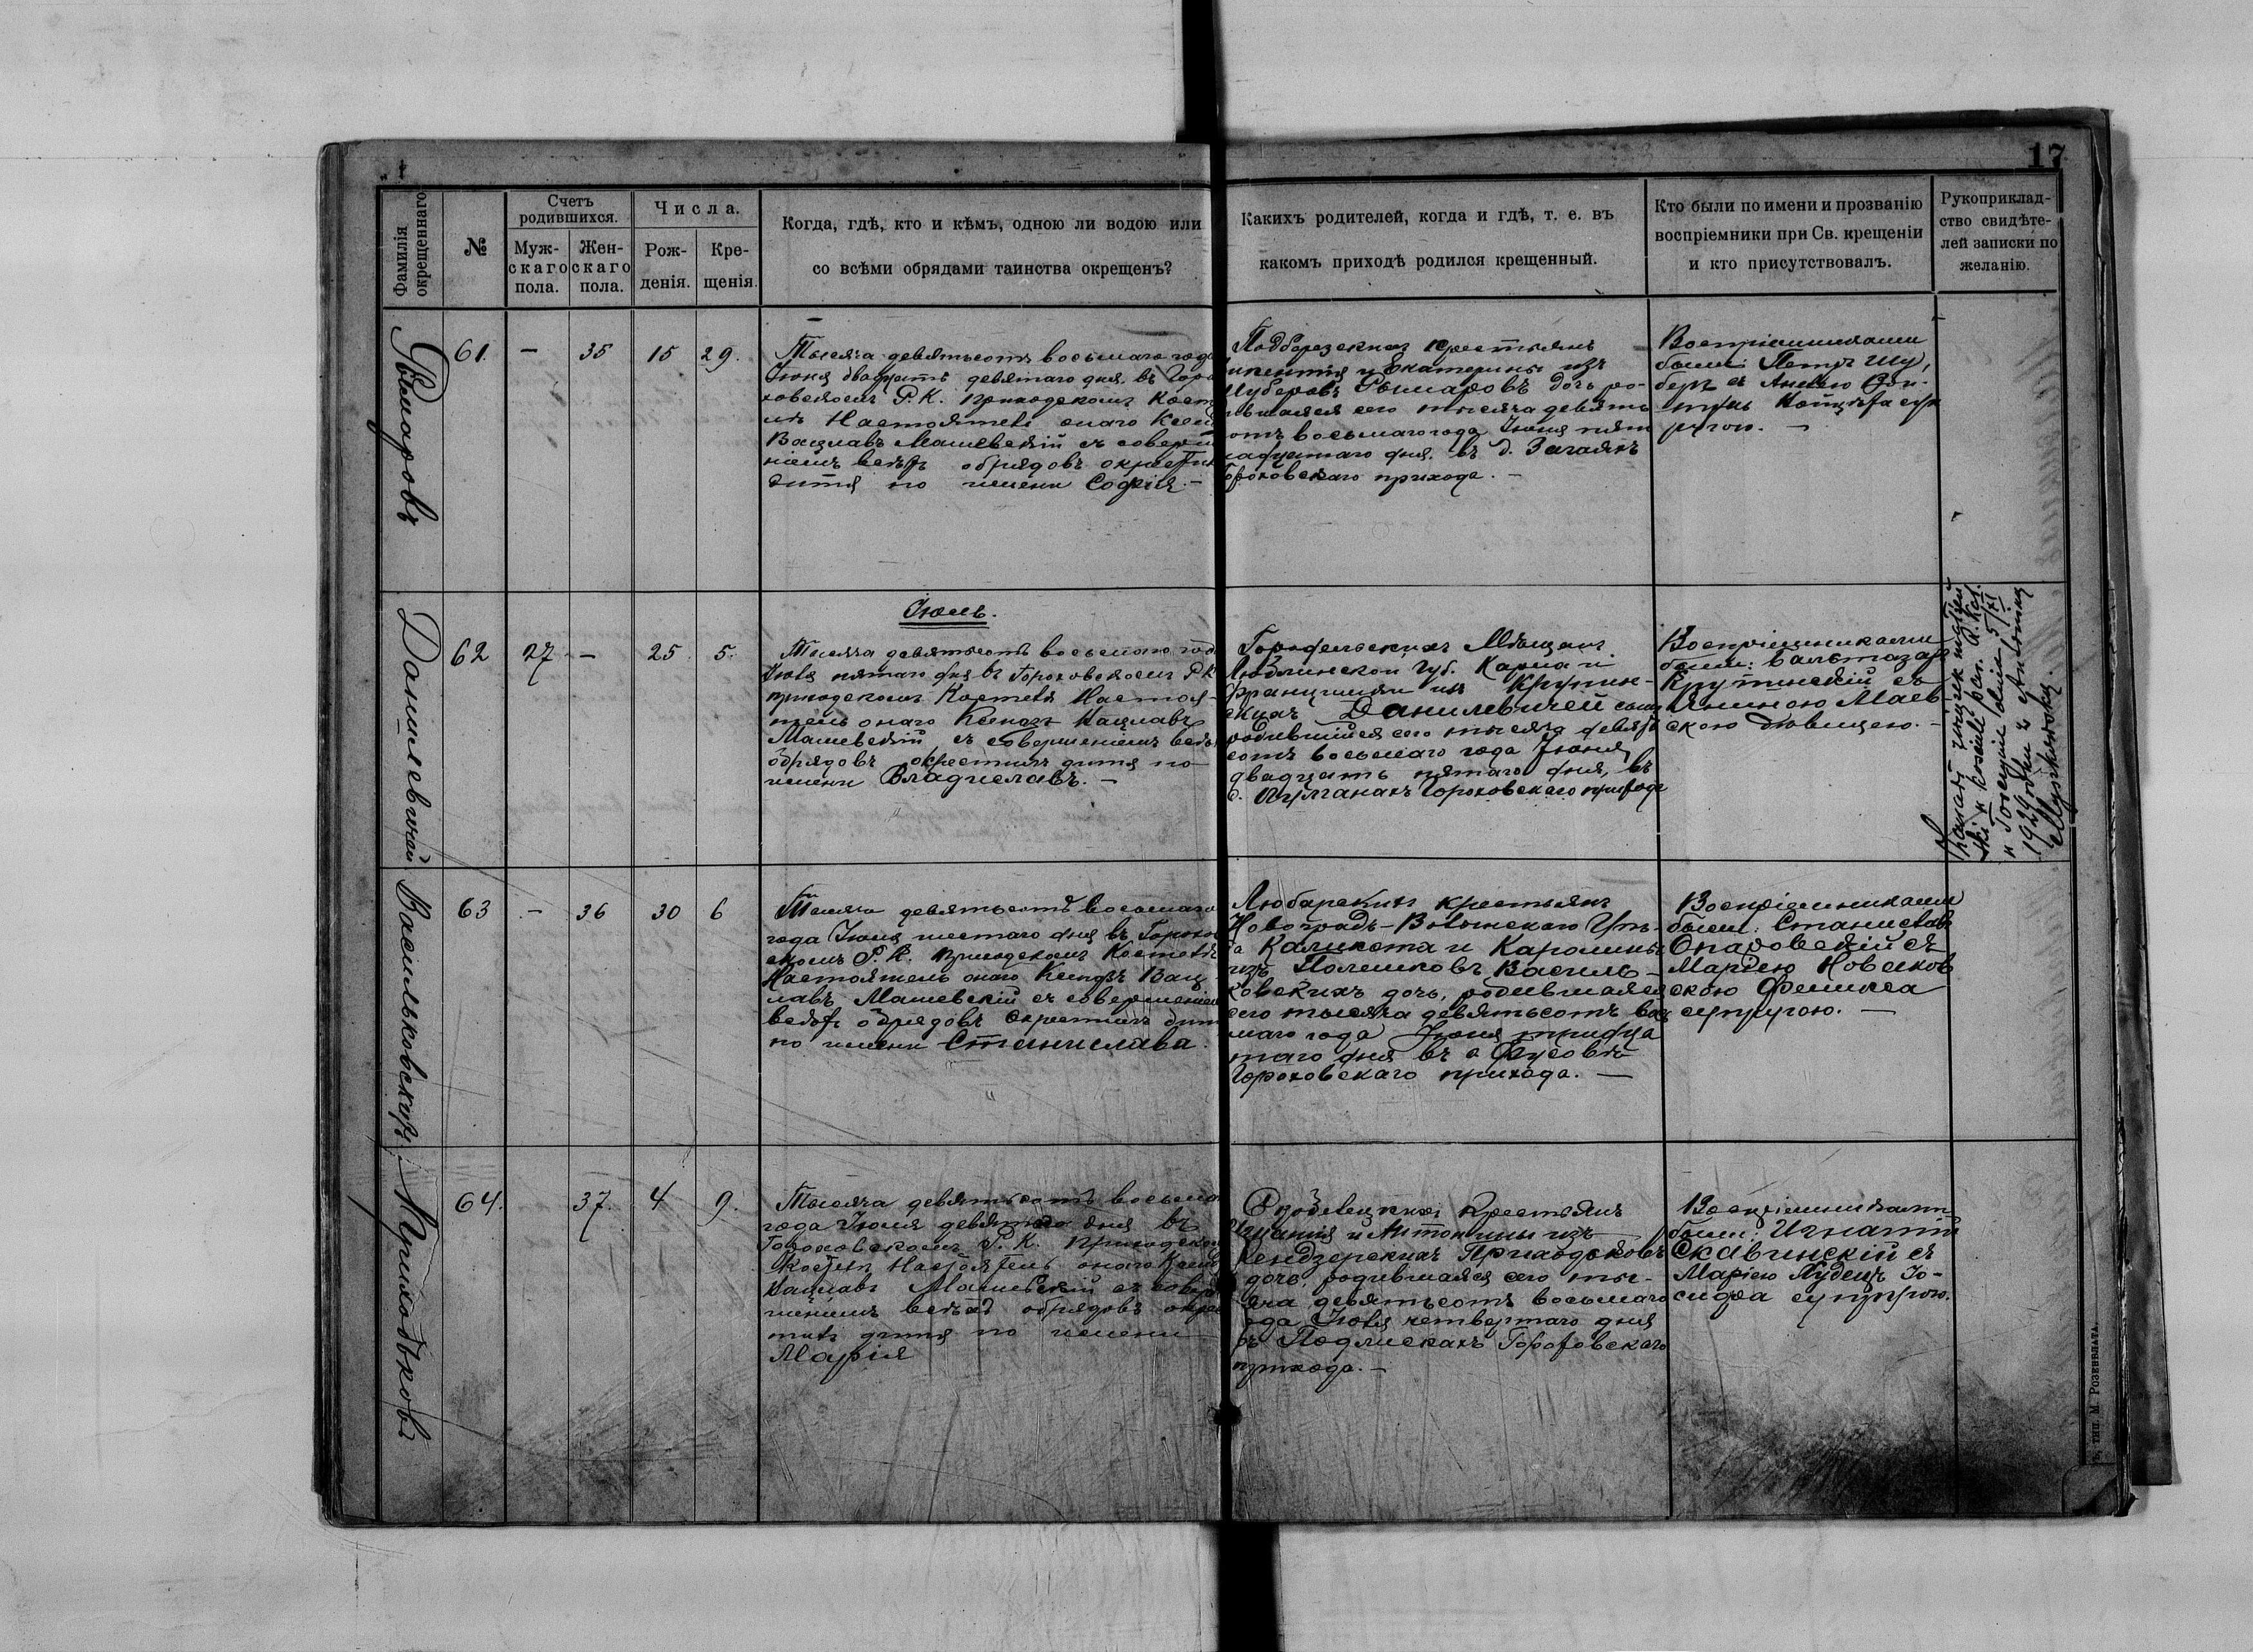 17
Фамилія окрещеннаго
№
Счетъ родившихся.
Муж-скаго пола.
Жен-скаго пола.
Числа.
Рож-денія.
Кре-щенія.
Когда, гдѣ, кто и кѣмъ, одною ли водою или
со всѣми обрядами таинства окрещенъ?
Какихъ родителей, когда и гдѣ, т. е. въ
какомъ приходѣ родился крещенный.
Кто были по имени и прозванію
воспріемники при Св. крещеніи
и кто присутствовалъ.
Рукоприклад-
ство свидѣте-
лей записки по
желанію.
Рымаровъ
61. — 35 15 29.
Тысяча девятьсотъ восьмаго года
Іюня двадцать девятаго дня въ Горо
ховскомъ Р. К. приходскомъ Косте
лѣ Настоятель онаго Ксендзъ
Вацлавъ Машевскій съ соверше
ніемъ всѣхъ обрядовъ окрестилъ
дитя по имени Софія. —
Подберезскихъ крестьянъ
и Екатерины изъ
Шуберовъ Рымаровъ дочь ро-
дившаяся сего тысяча девять
сотъ восьмаго года Іюня пят
надцатаго дня въ д. Загаяхъ
Гороховскаго прихода. —
Воспріемниками
были: Петръ Шу-
беръ съ Анною
супругою. —
Іюль.
Данилевичей
62 27 — 25 5.
Тысяча девятьсотъ восьмаго года
Іюля пятаго дня въ Гороховскомъ Р К
приходскомъ Костелѣ Настоя-
тель онаго Ксендзъ Вацлавъ
Машевскій съ совершеніемъ всѣхъ
обрядовъ окрестилъ дитя по
имени Владиславъ. —
Городельскихъ Мѣщанъ
Люблинской Губ. Карла и
Францишки изъ Крупин-
скихъ Данилевичей сынъ
родившійся сего тысяча девять
сотъ восьмаго года Іюня
двадцать пятаго дня, въ
д. Гороховскаго прихода
Воспріемниками
были: Бальтазаръ
Крупинскій съ
Яниною Маев
скою дѣвицею. —
Васильковскихъ.
63 — 36 30 6
Тысяча девятьсотъ восьмаго
года Іюля шестаго дня въ Горохов
скомъ Р. К. приходскомъ Костелѣ
Настоятель онаго Ксендзъ Вац
лавъ Машевскій съ совершеніемъ
всѣхъ обрядовъ окрестилъ дитя
по имени Станислава.
Любарскихъ крестьянъ
Новоградъ-Волынскаго Уѣз-
да Каликста и Каролины
изъ Полешковъ Василь-
ковскихъ дочь, родившаяся
сего тысяча девятьсотъ вось
маго года Іюня тридца
таго дня въ с.
Гороховскаго прихода. —
Воспріемниками
были: Станиславъ
Опаровскій съ
Маріею Новаков
скою Феликса
супругою. —
Приходьковъ
64. 37. 4 9.
Тысяча девятьсотъ восьма
года Іюля девятаго дня въ
Гороховскомъ Р. К. приходскомъ
Костелѣ Настоятель онаго Ксендзъ
Вацлавъ Машевскій съ совер
шеніемъ всѣхъ обрядовъ окрес
тилъ дитя по имени
Марія
крестьянъ
Игнатія и Антонины изъ
Кендзерскихъ Приходьковъ
дочь, родившаяся сего ты-
сяча девятьсотъ восьмаго
года Іюля четвертаго дня
въ Подлискахъ Гороховскаго
прихода. —
Воспріемниками
были: Игнатій
Скавинскій съ
Маріею Худецъ Іо-
сифа супругою.